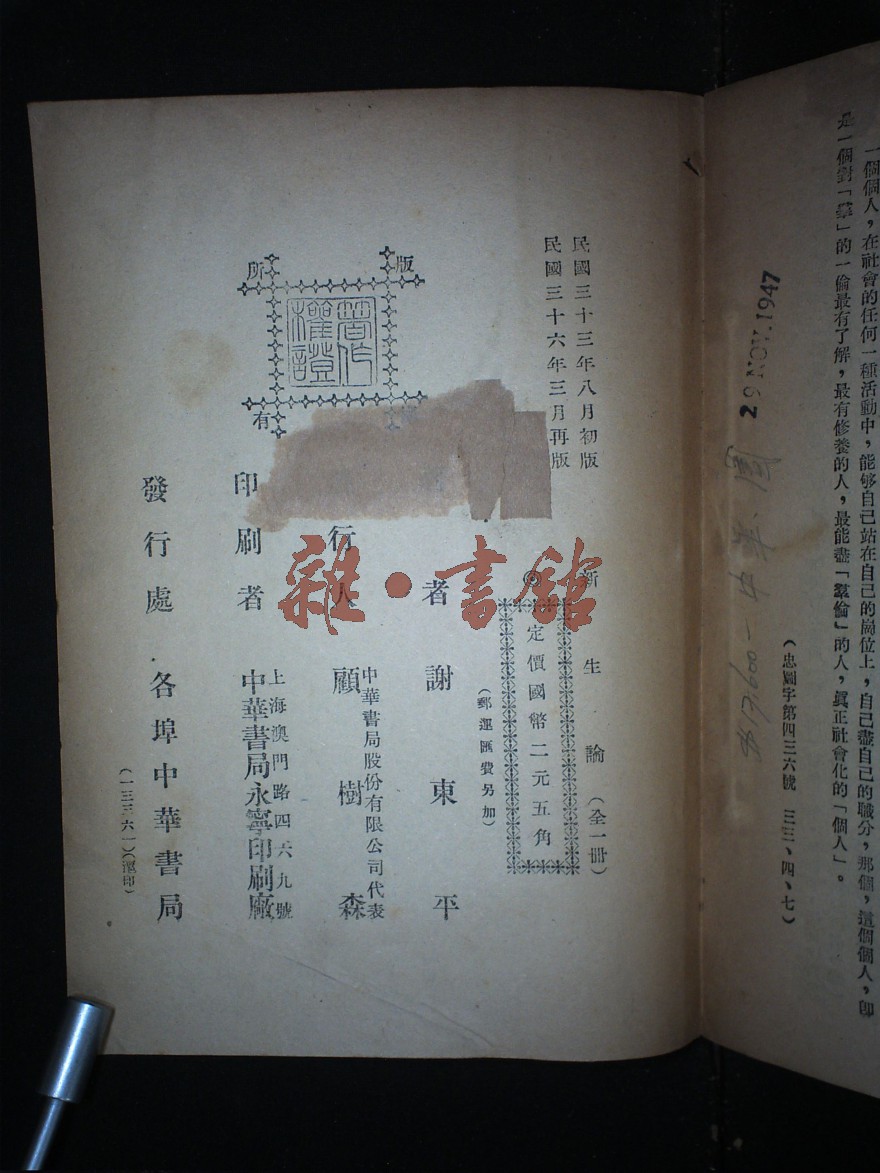 一個個人，在社會的任何一種活動中，能够自己站在自己的崗位上，自己盡自己的職分，那個，這個個人，卽
是一個對「羣」的一倫最有了解，最有修養的人，最能盡「羣倫」的人，眞正社會化的「個人」。
（忠圖字第四三六號　三三、四、七）
29 NOV. 1947
民國三十三年八月初版
民國三十六年三月再版
新生論（全一册）
◎定價國幣二元五角
（郵運匯費另加）
者　謝東平
行人　中華書局股份有限公司代表
顧樹森
印刷者　上海澳門路四六九號
中華書局永寧印刷廠
發行處　各埠中華書局
（一三三六一）（滬印）
版
所
有
著作
權證
雜·書館